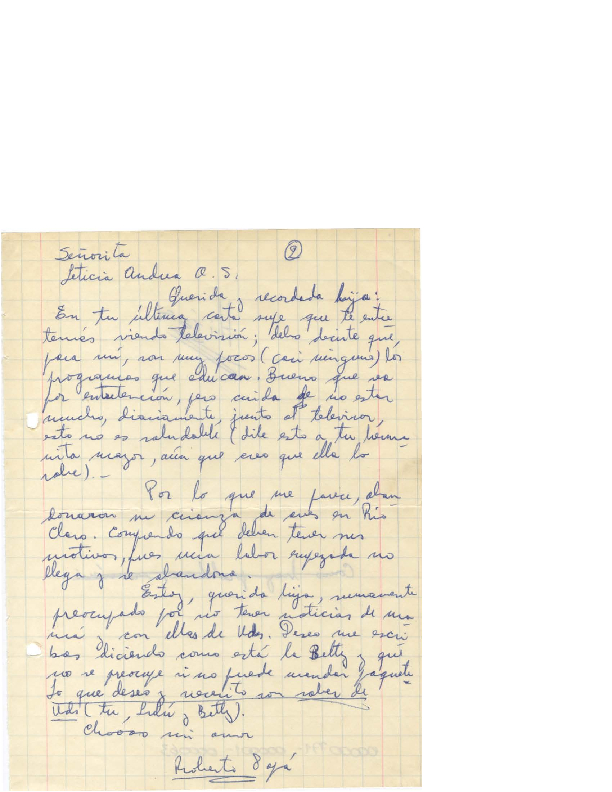 Señorita ②
Leticia Andrea O. S.
Querida y recordada hija:
En tu última carta supe que te entre
tenías viendo televisión; debo decirte que,
para mí, son muy pocos (casi ninguno) los
programas que educan. Bueno que sea
por entretención, pero cuida de no estar
mucho, diariamente, junto al televisor,
esto no es saludable (dile esto a tu herma-
nita mayor, aún que creo que ella lo
sabe).-
Por lo que me parece, aban
donaron su crianza de aves en Río
Claro. Comprendo que deben tener sus
motivos, pues una labor empezada no
llega y se abandona.
Estoy, querida hija, sumamente
preocupado por no tener noticias de ma
má y con ellas de Uds. Deseo me escri
bas diciendo como está la Betty y que
no se preocupe si no puede mandar paquete.
Lo que deseo y necesito son saber de
Uds (tu, Lulú y Betty).
Chaooo mi amor
Roberto Papá